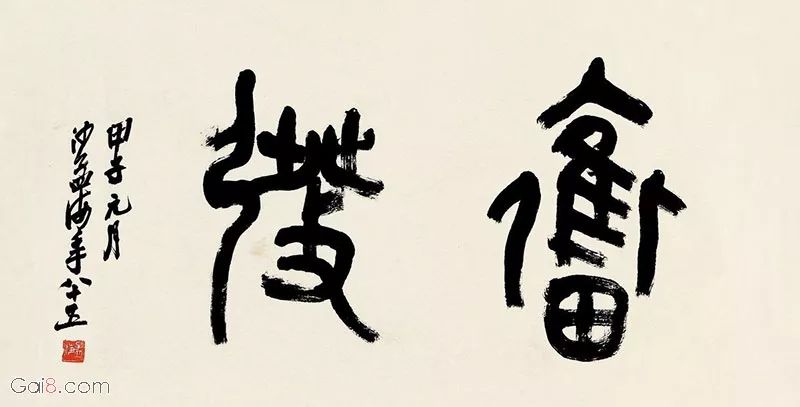 奮發
甲子元月
沙孟海年八十五
Gai8.com